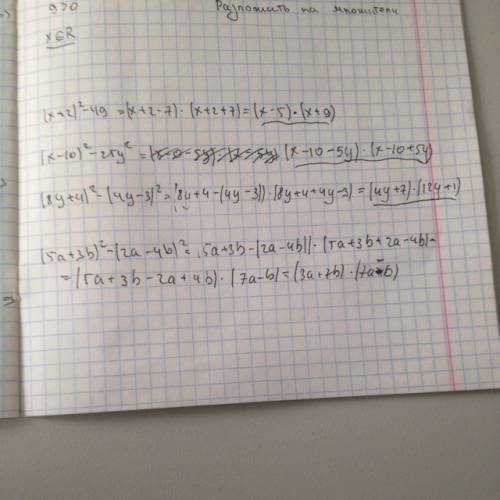 9>0 Разложить на множители
x∈R
(x+2)²-49=(x+2-7)·(x+2+7)=(x-5)·(x+9)
(x-10)²-25y²= (x-10-5y)·(x-10+5y)
(8y+4)²-(4y-3)²=(8y+4-(4y-3))·(8y+4+4y-3)=(4y+7)·(12y+1)
(5a+3b)²-(2a-4b)²=(5a+3b-(2a-4b))·(5a+3b+2a-4b)=
=(5a+3b-2a+4b)·(7a-b)=(3a+7b)·(7a-b)